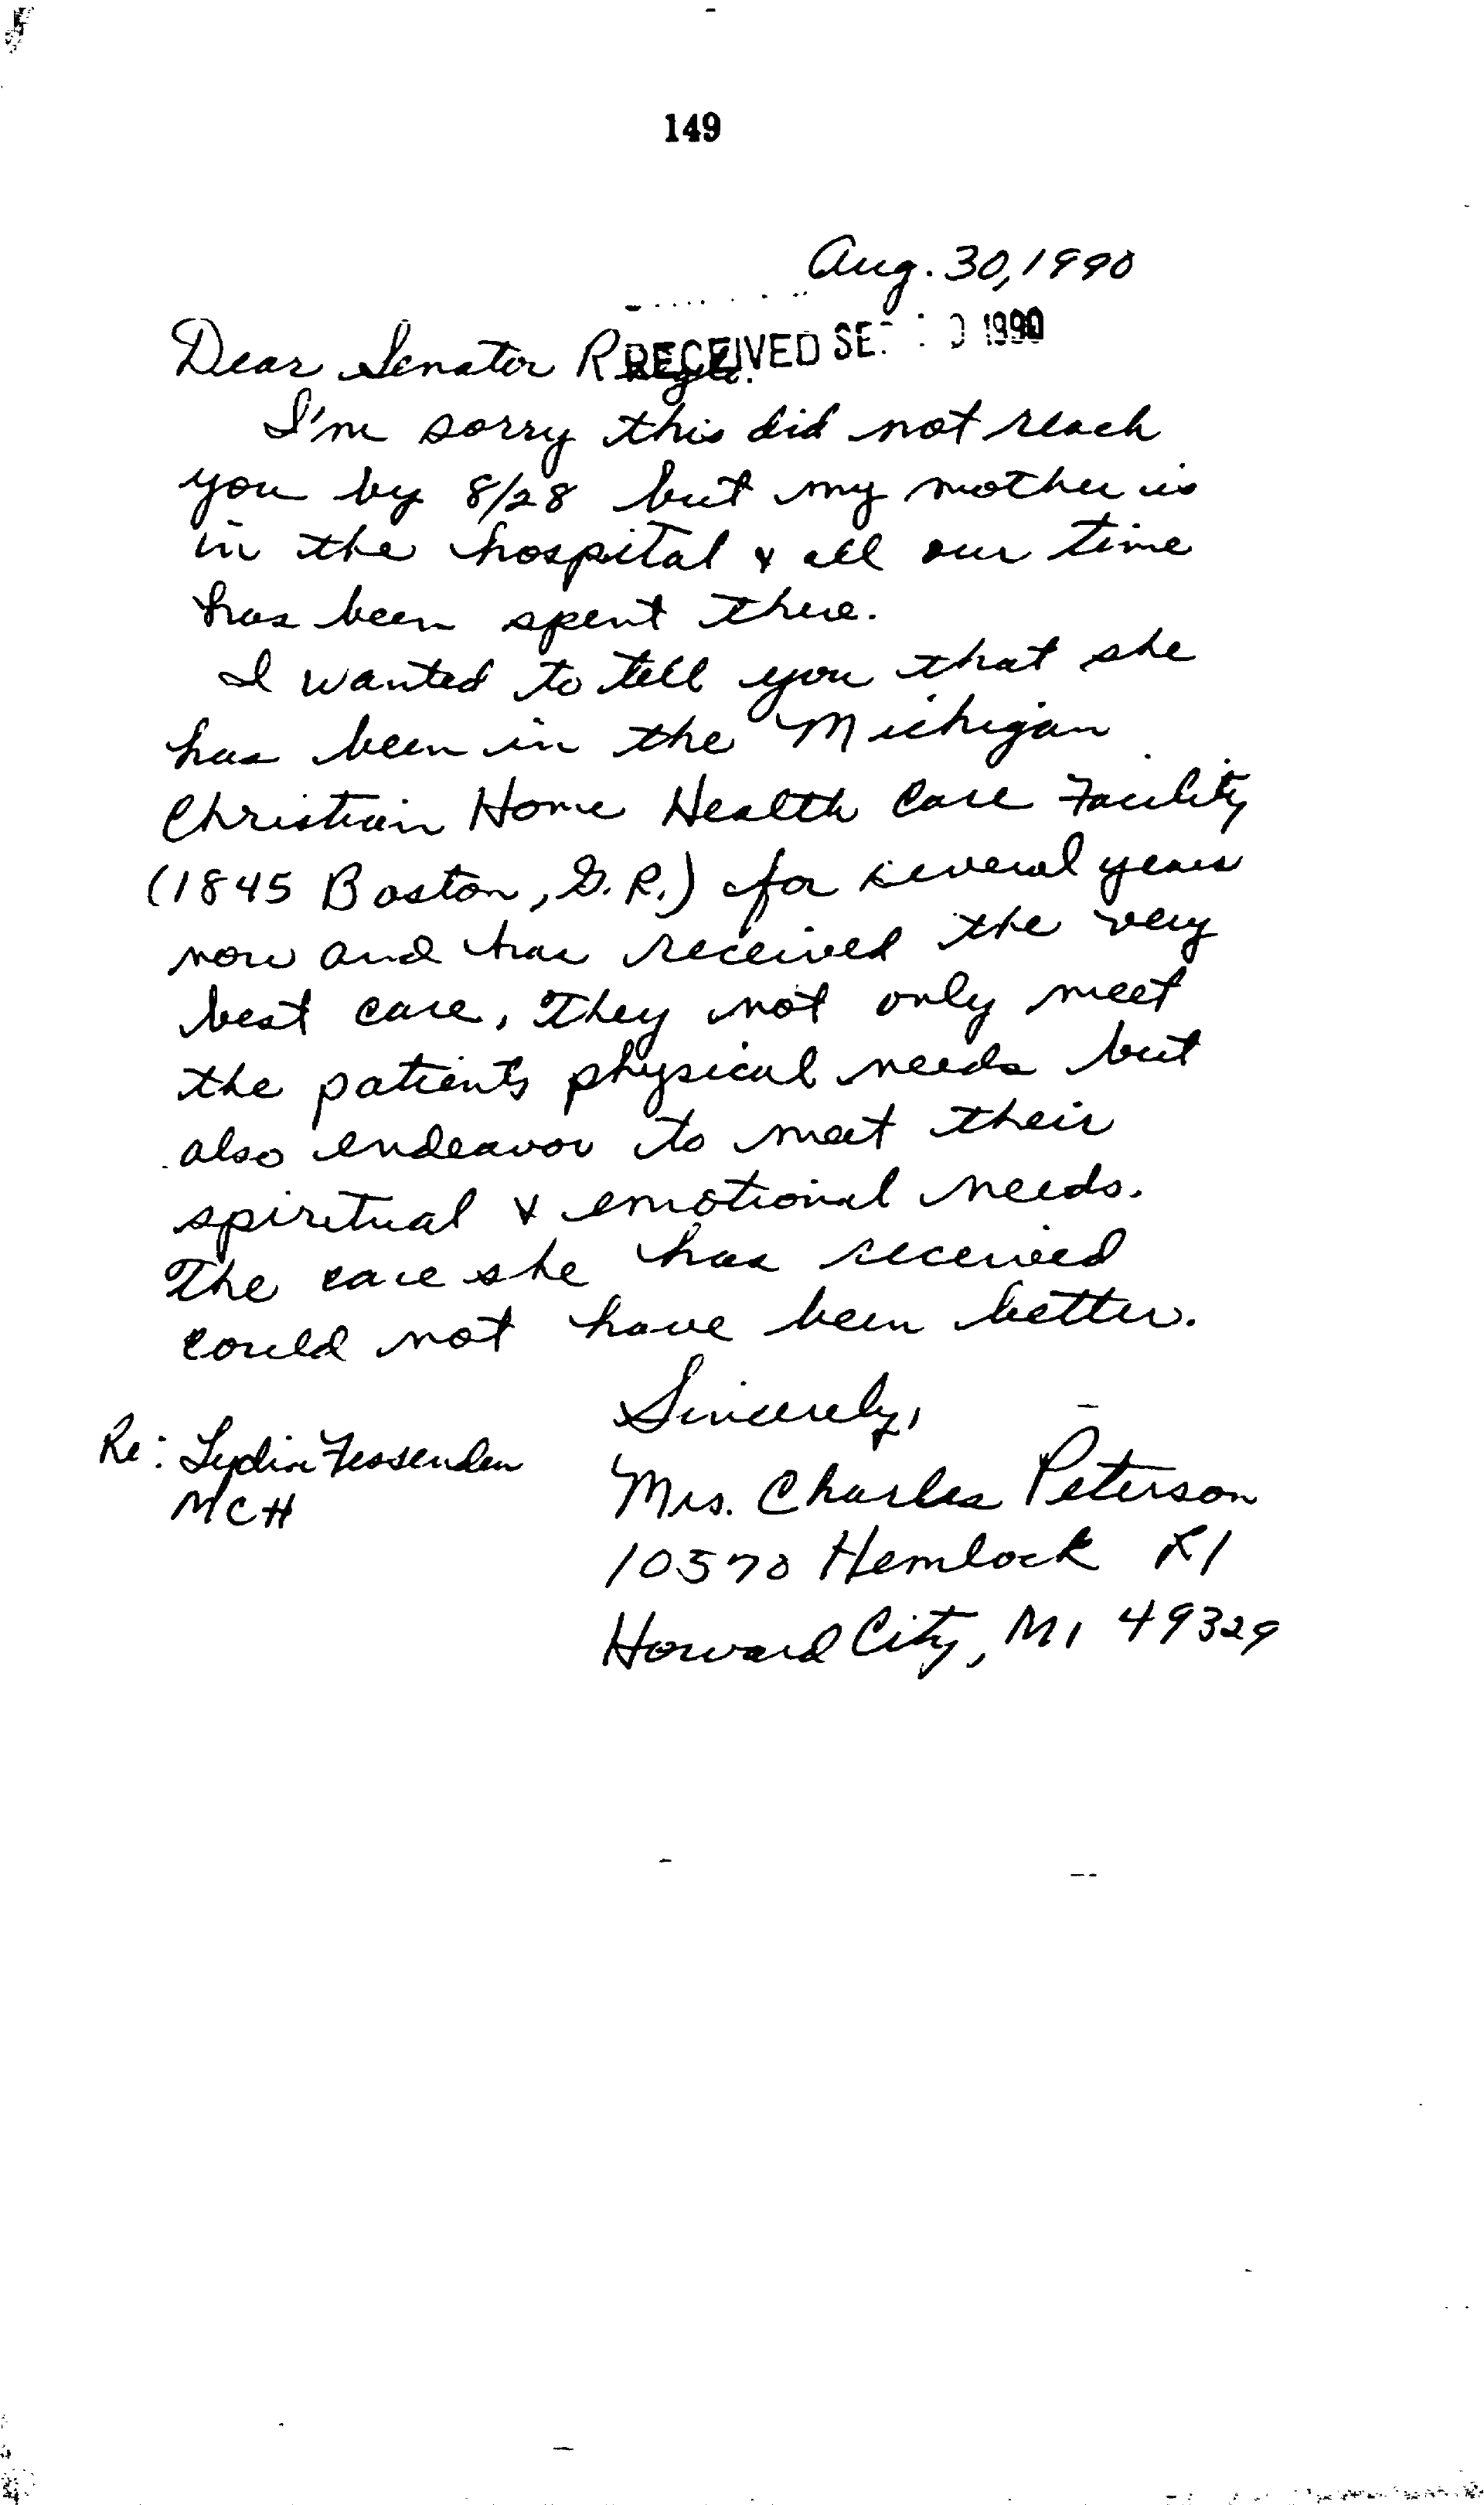 149
Aug. 30, 1990
RECEIVED 1990
Dear Senator
I'm sorry this did not reach
you by 8/28 but my mother is
in the hospital & all our time
has been spent there.
I wanted to tell you that she
has been in the Michigan
Christian Home Health Care Facility
(1845 Boston, G.R.) for several years
now and has received the very
best care. They not only meet
the patients physical needs but
also endeavor to meet their
spiritual & emotional needs.
The care she has received
could not have been better.
Sincerely,
Re: Lydia Fessenden
MCH
Mrs. Charles Peterson
10570 Hemlock R1
Howard City, MI 49329